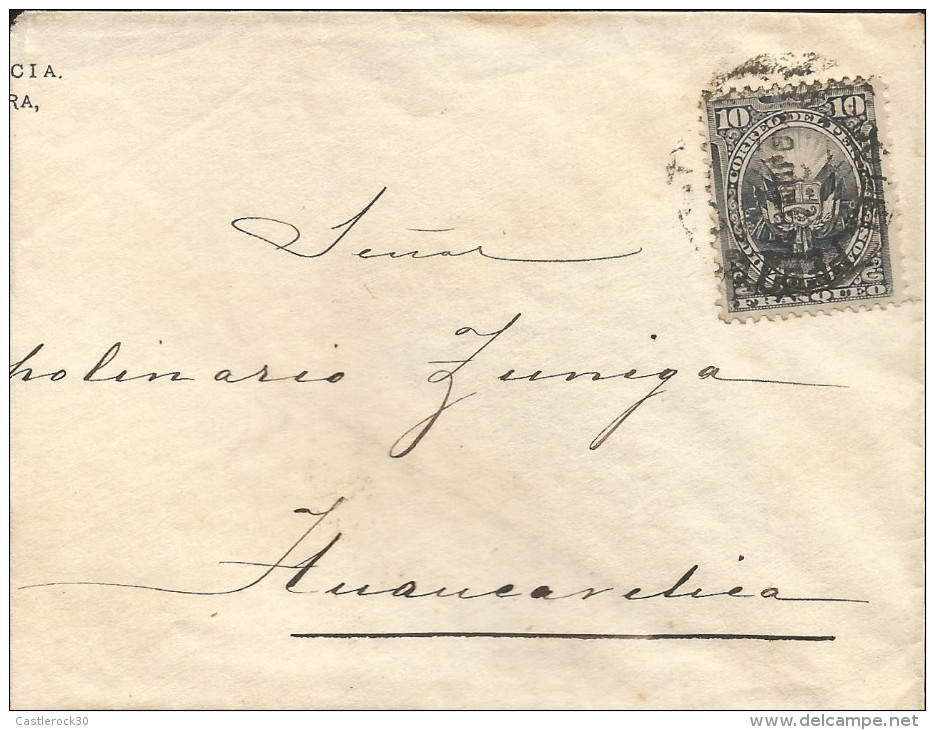 CIA.
RA,
10 10
CORREO DEL PERU
FRANQUEO
Señor
holinario Zuniga
Huancavelica
Castlerock30
www.delcampe.net